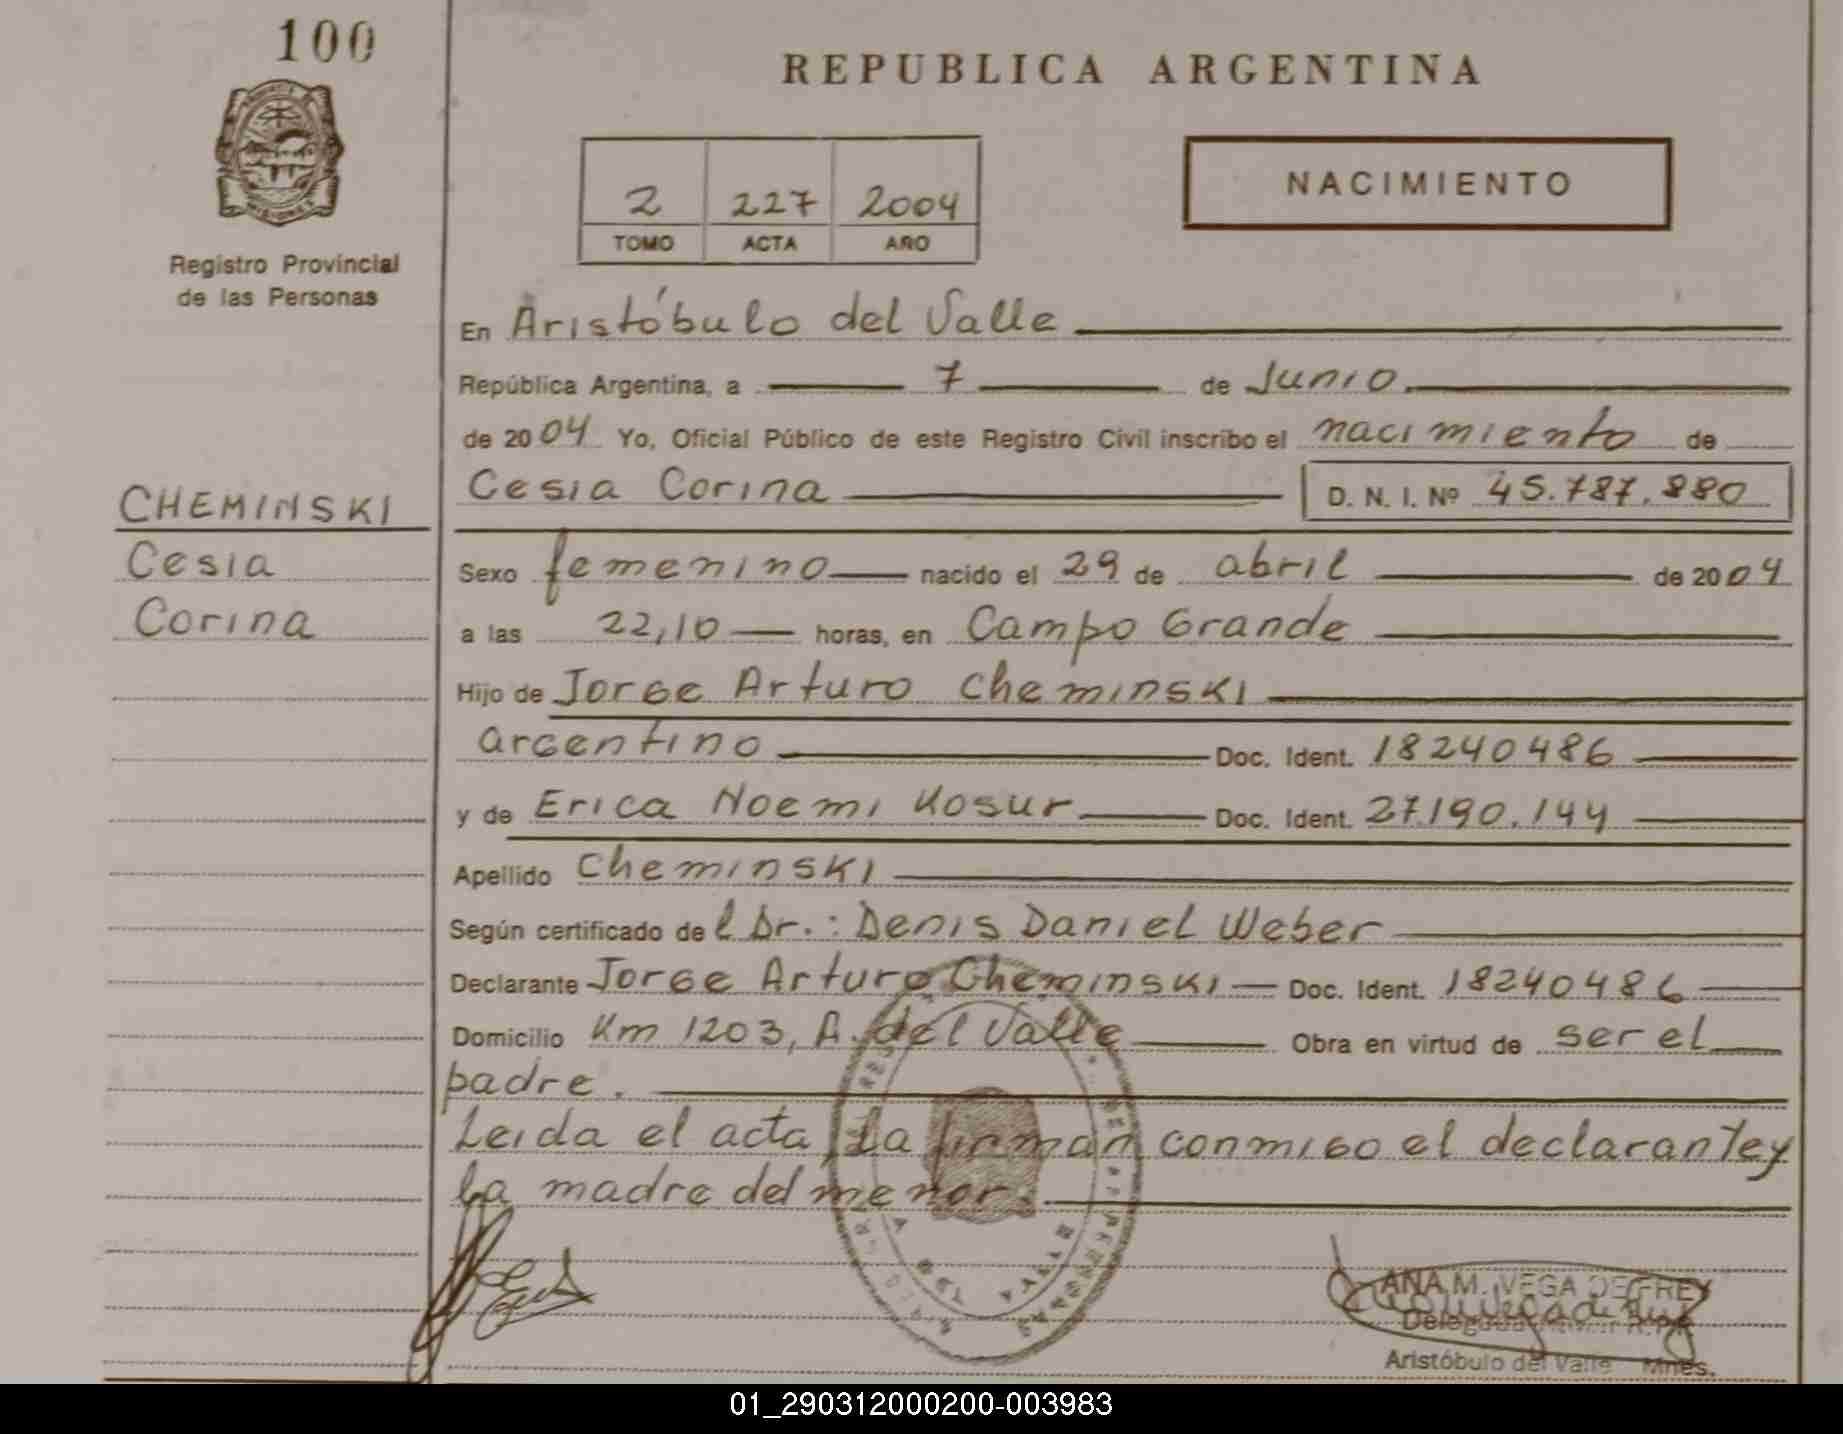 100
REPUBLICA ARGENTINA
NACIMIENTO
2 227 2004
TOMO ACTA AÑO
Registro Provincial
de las Personas
En Aristóbulo del Valle
República Argentina, a 7 de Junio.
de 2004 Yo, Oficial Público de este Registro Civil inscribo el nacimiento de
Cesia Corina D. N. I. Nº 45.787.880
CHEMINSKI
Cesia
Corina
Sexo femenino nacido el 29 de abril de 2004
a las 22,10 horas, en Campo Grande
Hijo de Jorge Arturo Cheminski
argentino Doc. Ident. 18240486
y de Erica Noemi Kosur Doc. Ident. 27.190.144
Apellido Cheminski
Según certificado del Dr.: Denis Daniel Weber
Declarante Jorge Arturo Cheminski Doc. Ident. 18240486
Domicilio Km 1203, A. del Valle Obra en virtud de ser el
padre.
Leida el acta, la firman conmigo el declarante y
la madre del menor.
ANA M. VEGA DE FREY
Aristóbulo del Valle Mnes.
01_290312000200-003983